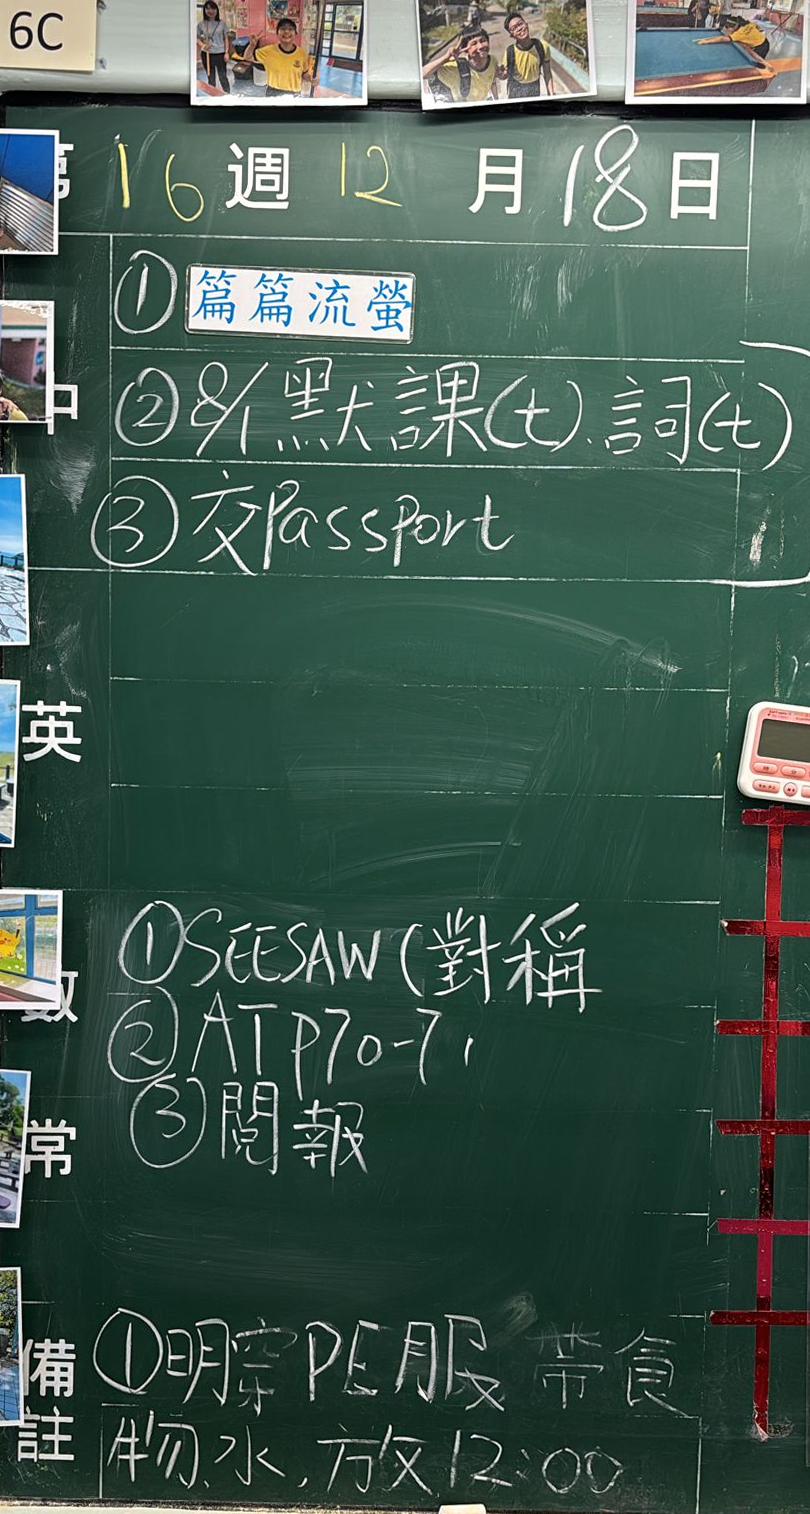 6C
第16週12月18日
中
①篇篇流螢
②8/1默課(七).詞(七)
③交Passport
英
數
①SEESAW(對稱
②ATP70-71
常
③閱報
備註
①明穿PE服 帶食
物、水,放12:00